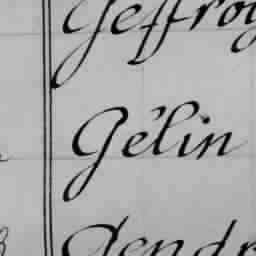 Geffroy
Gélin
Gendr